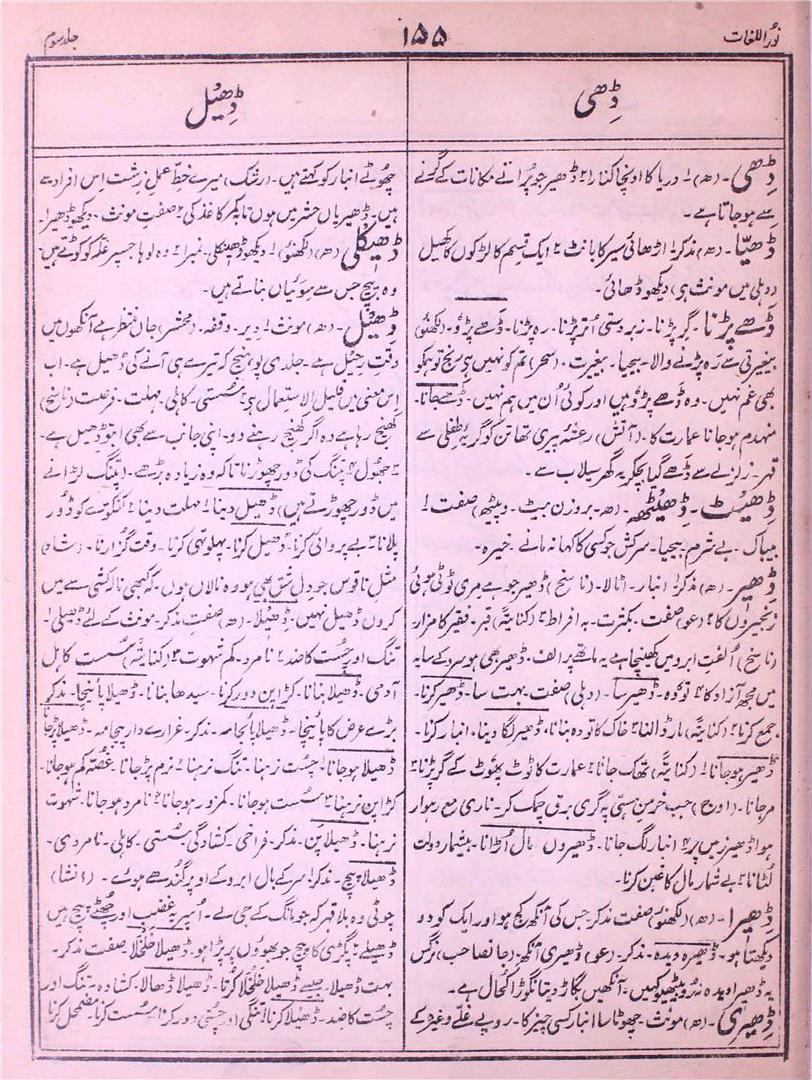 نوراللغات
۱۵۵
جلد سوم
ڈِھی
ڈِھیل
ڈِھی۔ (ھ) ۱ دریا کا اونچا کنارا ۲ ڈھیر جو پُرانے مکانات کے گرنے
سے ہوجاتا ہے۔
ڈَھیّا۔ (ھ) مذکر ۱ اڑھائی سیر کا بانٹ ۲ ایک قسم کا لڑکوں کا کھیل
(دہلی میں مونث ہی) دیکھو ڈھائی۔
ڈَھے پڑنا۔ گِر پڑنا۔ زبردستی اُتر پڑنا۔ رہ پڑنا۔ ڈھے پڑو۔ (لکھنؤ)
بیغیرتی سے رہ پڑنے والا۔ بیحیا۔ بیغیرت۔ (سحر) غم کو نہیں ہی رنج تو ہمکو
بھی غم نہیں۔ وہ ڈھے پڑو ہیں اور کوئی اُن میں ہم نہیں۔ ڈھے جانا۔
منہدم ہوجانا عمارت کا۔ (آتش) رعشۂ پیری تھا تن کو گریۂ طفلی سے
قہر۔ زلزلے سے ڈھے گیا بچکر یہ گھر سیلاب سے۔
ڈِھیٹ۔ ڈِھیٹھ۔ (ھ۔ بروزن میٹ۔ وپیٹھ) صفت ۱
بیباک۔ بے شرم۔ بیحیا۔ سرکش جو کسی کا کہا نہ مانے۔ خیرہ۔
ڈھیر۔ (ھ) مذکر ۱ انبار۔ اٹالا۔ (ناسخ) ڈھیر جو ہے مری ٹوٹی ہوئی
زنجیروں کا ۲ (عو) صفت۔ بکثرت۔ بہ افراط ۳ (کنایۃً) قبر۔ فقیر کا مزار
(ناسخ) اُلفتِ ابرو میں کھینچا ہے یہ ماتھے پر الف۔ ڈھیر بھی ہو سرو کے سایہ
میں مجھ آزاد کا ۴ تودہ۔ ڈھیر سا۔ (دہلی) صفت۔ بہت سا۔ ڈھیر کرنا۔
جمع کرنا ۲ (کنایۃً) مار ڈالنا ۳ خاک کا تودہ بنانا۔ ڈھیر لگا دینا۔ انبار کرنا۔
ڈھیر ہوجانا ۱ (کنایۃً) تھک جانا ۲ عمارت کا ٹوٹ پھوٹ کے گر پڑنا ۳
مرجانا۔ (اوج) جب خرمن ہستی پہ گری برق چمک کر۔ ناری مع رہوار
ہوا ڈھیر زمیں پر ۴ انبار لگ جانا۔ ڈھیروں مال اُڑانا۔ بیشمار دولت
لُٹانا ۲ بے شمار مال کا غبن کرنا۔
ڈھیرا۔ (ھ) (لکھنؤ) صفت مذکر۔ جس کی آنکھ کج ہو اور ایک کو دو
دیکھتا ہو۔ ڈھیرہ دیدہ۔ مذکر۔ (عو) ڈھیری آنکھ۔ (جانصاحب) نرگس
یہ ڈھیرا دیدہ نہ پیٹھیو کہیں۔ آنکھیں بگاڑ دیتا نگوڑا کحال ہے۔
ڈھیری۔ (ھ) مونث۔ چھوٹا سا انبار کسی چیز کا۔ روپے غلے وغیرہ کے
چھوٹے انبار کو کہتے ہیں۔ (رشک) میرے خط عمل زشت اس افراد سے
ہیں۔ ڈھیریاں حشر میں ہوں تا بکمر کاغذ کی ۲ صفت مونث۔ دیکھو ڈھیرا۔
ڈھیکلی (ھ) (لکھنؤ) ۱ دیکھو ڈھینکلی۔ نمبر ۱ ۲ وہ لوہا جسپر غلہ کو کوٹتے ہیں
وہ پیچ جس سے سوئیاں بناتے ہیں۔
ڈِھیل۔ (ھ) مونث ۱ دیر۔ وقفہ۔ (محشر) جان منتظر ہے آنکھوں میں
وقت رحیل ہے۔ جلدی پہونچ کہ تیرے ہی آنے کی ڈھیل ہے۔ اب
اس معنی میں قلیل الاستعمال ہی ۲ سُستی۔ کاہلی۔ مہلت۔ فرصت (ناسخ)
کھینچ رہا ہے وہ اگر کھنچ رہنے دو۔ اپنی جانب سے بھی ابتو ڈھیل ہے۔
۳ جھُول ۴ پتنگ کی ڈور چھوڑنا تاکہ وہ زیادہ بڑھے۔ (پتنگ لڑانے
میں ڈور چھوڑتے ہیں) ڈھیل دینا ۱ مہلت دینا ۲ کنکوّے کو ڈور
پلانا ۳ بے پروائی کرنا۔ ڈھیل کرنا۔ پہلوتہی کرنا۔ وقت گزارنا۔ (شاد)
مثل ناقوس جو دل شق بھی ہو وہ نالاں ہوں۔ کہ کبھی نالہ کشی سے میں
کروں ڈھیل نہیں۔ ڈھیلا۔ (ھ) صفت مذکر۔ مونث کے لئے ڈھیلی ۱
تنگ اور چُست کا ضد ۲ نامرد۔ کم شہوت ۳ (کنایۃً) سُست کاہل
آدمی۔ ڈھیلا بنانا۔ کڑاپن دور کرنا۔ سیدھا بنانا۔ ڈھیلا پائنچا۔ مذکر
بڑے عرض کا پائنچا۔ ڈھیلا پائجامہ۔ مذکر۔ غرارے دار پیجامہ۔ ڈھیلا پڑجانا
ڈھیلا ہوجانا ۱ چست نرہنا۔ تنگ نرہنا ۲ نرم پڑجانا۔ غصّہ کم ہوجانا۔
کڑاپن نرہنا ۳ سُست ہوجانا۔ کمزور ہوجانا ۴ نامرد ہوجانا۔ شہوت
نرہنا۔ ڈھیلاپن۔ مذکر۔ فراخی۔ کشادگی۔ سُستی۔ کاہلی۔ نامردی۔
ڈھیلا پیچ۔ مذکر ۱ سر کے بال ابرو کے اوپر گُندھے ہوئے۔ (انشا)
چوٹی وہ بلا قہر کہ جو مانگ کے جی لے۔ اُسپر یہ غضب اور چھٹے پیچ ہیں
ڈھیلے ۲ پگڑی کا پیچ جو بھوؤں پر پڑا ہو۔ ڈھیلا خلخلا۔ صفت مذکر۔
بہت ڈھیلا۔ جیسے ڈھیلا خلخلا کُرتا۔ ڈھیلا ڈھالا۔ کشادہ۔ تنگ اور
چست کا ضد۔ ڈھیلا کرنا ۱ تنگی اور چستی دور کرنا ۲ سُست کرنا۔ مضمحل کرنا